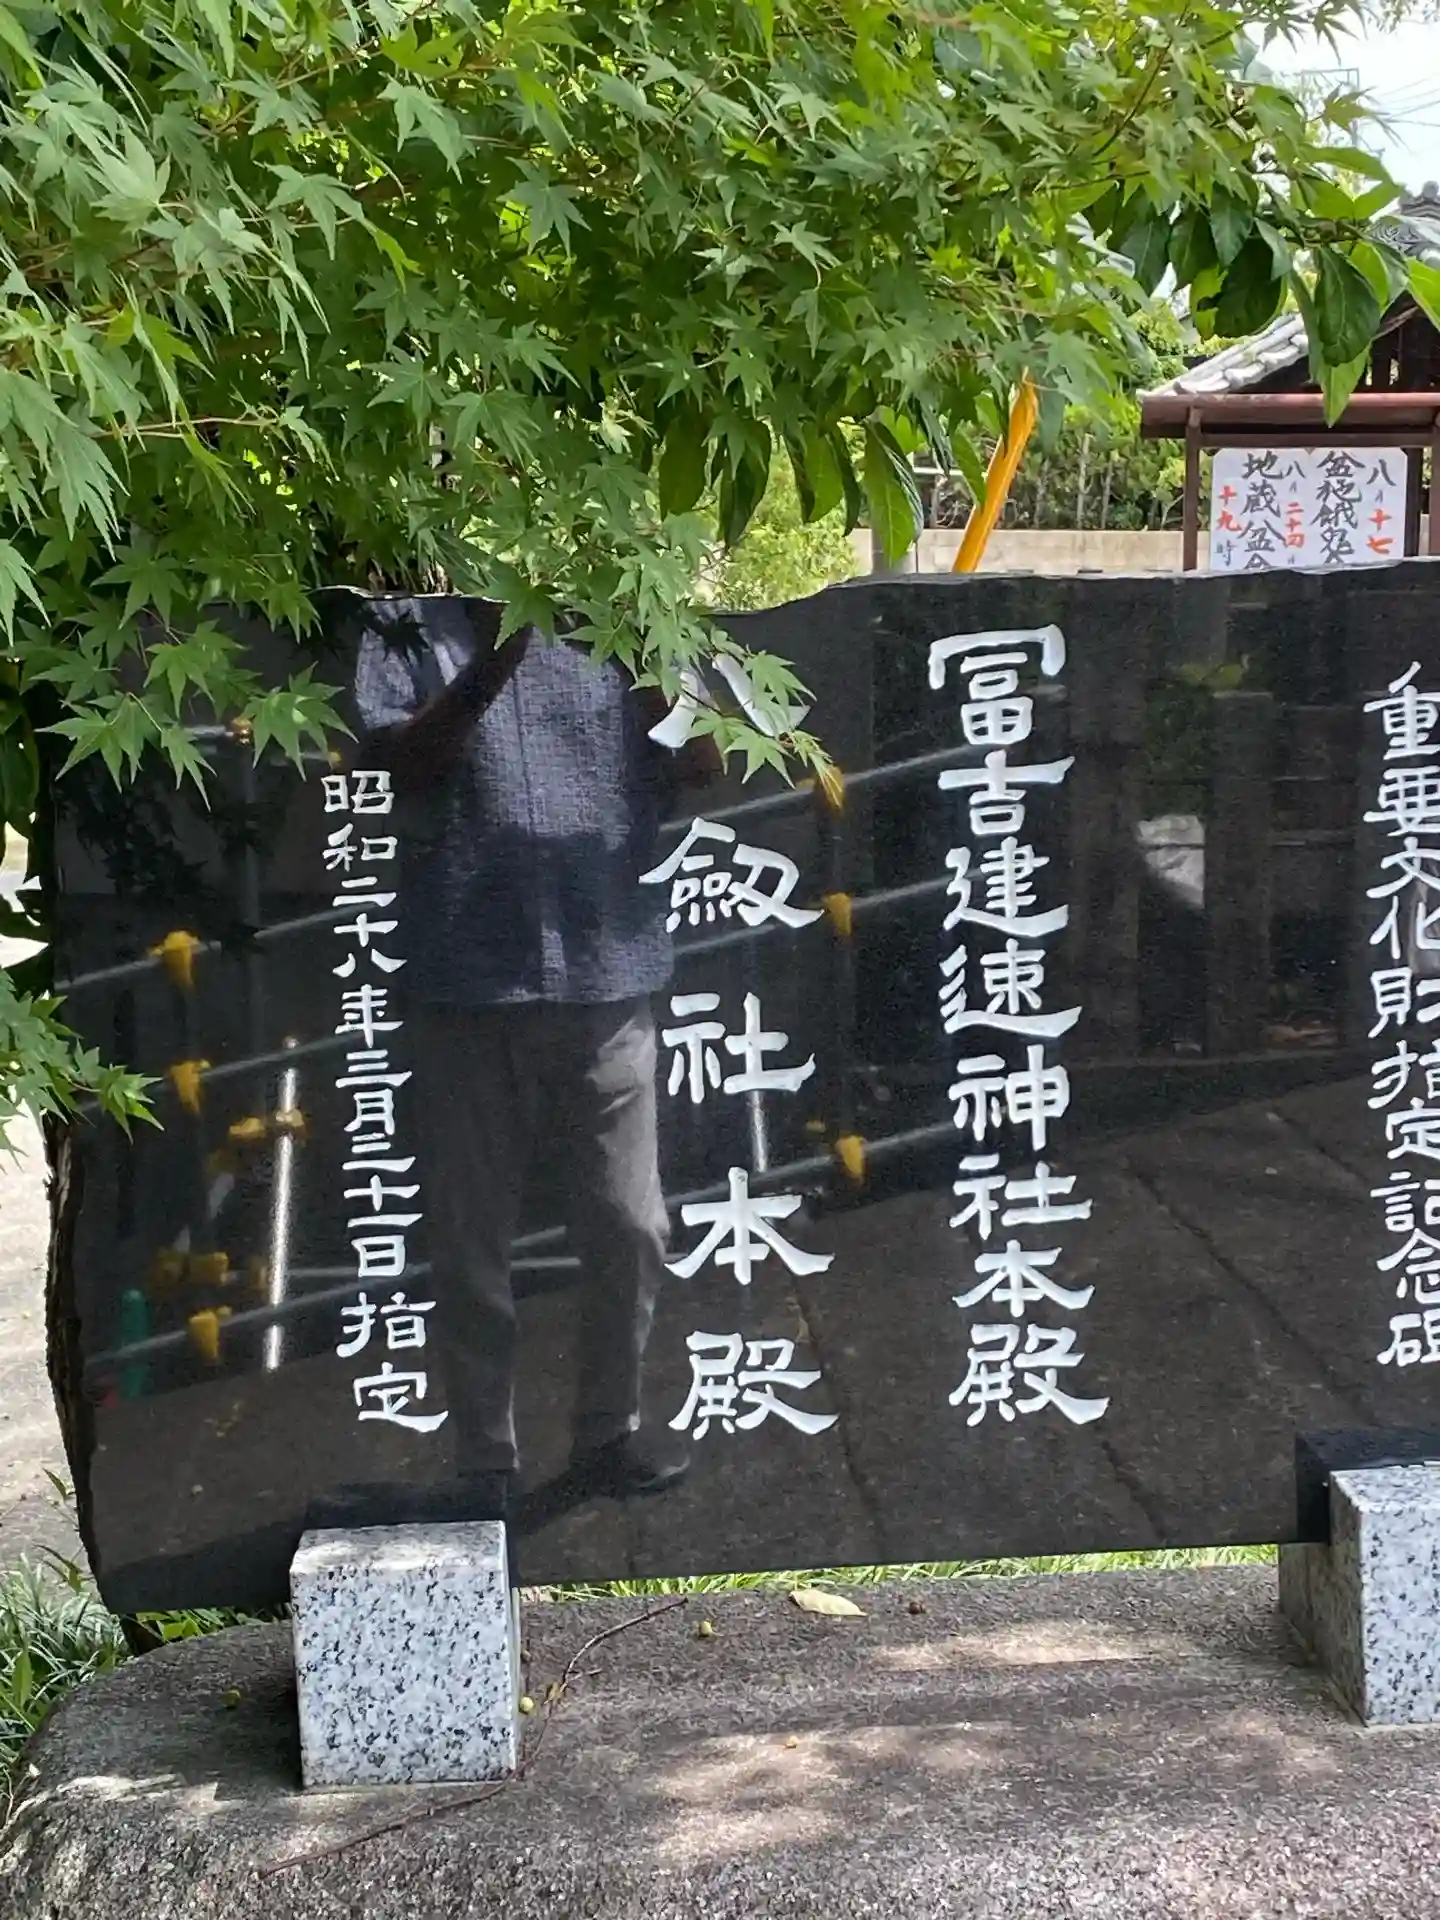 重要文化財指定記念碑
冨吉建速神社本殿
八劔社本殿
昭和二十八年三月三十一日指定
八月十七
盆施餓鬼会
八月二十四日
地蔵盆会
十九時